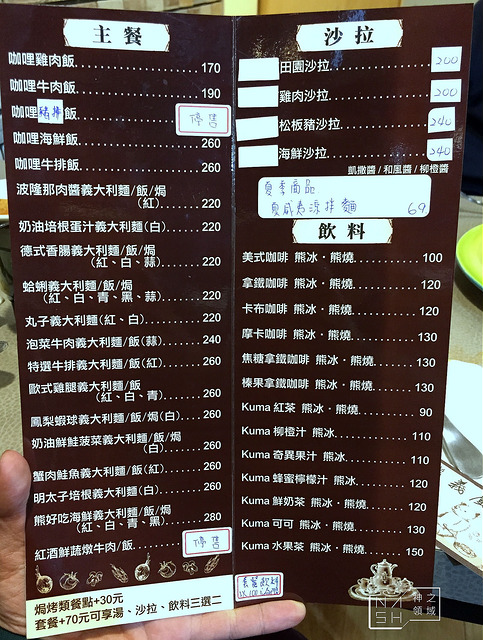 主餐
咖哩雞肉飯 170
咖哩牛肉飯 190
咖哩豬排飯 停售
咖哩海鮮飯 260
咖哩牛排飯 260
波隆那肉醬義大利麵/飯/焗
(紅) 220
奶油培根蛋汁義大利麵(白) 220
德式香腸義大利麵/飯/焗
(紅、白、蒜) 220
蛤蜊義大利麵/飯/焗
(紅、白、青、黑、蒜) 220
丸子義大利麵(紅、白) 220
泡菜牛肉義大利麵/飯(蒜) 240
特選牛排義大利麵/飯(紅) 260
歐式雞腿義大利麵/飯
(紅、白、青) 260
鳳梨蝦球義大利麵/飯/焗(白) 260
奶油鮮鮭菠菜義大利麵/飯/焗
(白) 260
蟹肉鮭魚義大利麵/飯(紅) 260
明太子培根義大利麵(白) 260
熊好吃海鮮義大利麵/飯/焗
(紅、白、青、黑) 280
紅酒鮮蔬燉牛肉/飯 停售
焗烤類餐點+30元
套餐+70元可享湯、沙拉、飲料三選二
沙拉
田園沙拉 200
雞肉沙拉 200
松板豬沙拉 240
海鮮沙拉 240
凱撒醬/和風醬/柳橙醬
夏季商品
夏威夷涼拌麵 69
飲料
美式咖啡 熊冰・熊燒 100
拿鐵咖啡 熊冰・熊燒 120
卡布咖啡 熊冰・熊燒 120
摩卡咖啡 熊冰・熊燒 130
焦糖拿鐵咖啡 熊冰・熊燒 130
榛果拿鐵咖啡 熊冰・熊燒 130
Kuma 紅茶 熊冰・熊燒 90
Kuma 柳橙汁 熊冰 110
Kuma 奇異果汁 熊冰 110
Kuma 蜂蜜檸檬汁 熊冰 120
Kuma 鮮奶茶 熊冰・熊燒 120
Kuma 可可 熊冰・熊燒 130
Kuma 水果茶 熊冰・熊燒 150
套餐飲料
神之
領域